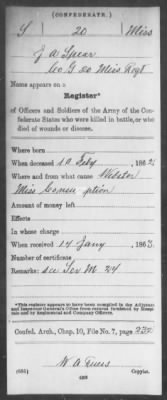 (CONFEDERATE.)
S 20 Miss
J A Spear
Co G 20 Miss Regt
Name appears on a
Register*
of Officers and Soldiers of the Army of the Confederate States who were killed in battle, or who died of wounds or disease.
Where born
When deceased 10 Feby, 1862
Where and from what cause
Miss Consumption
Amount of money left
Effects
In whose charge
When received 14 Jany, 1863
Number of certificate
Remarks: See M 24
*This register appears to have been compiled in the Adjutant and Inspector General's Office from returns furnished by Hospitals and by Regimental and Company Officers.
Confed. Arch., Chap. 10, File No. 7, page 232
W A
(635) Copyist.